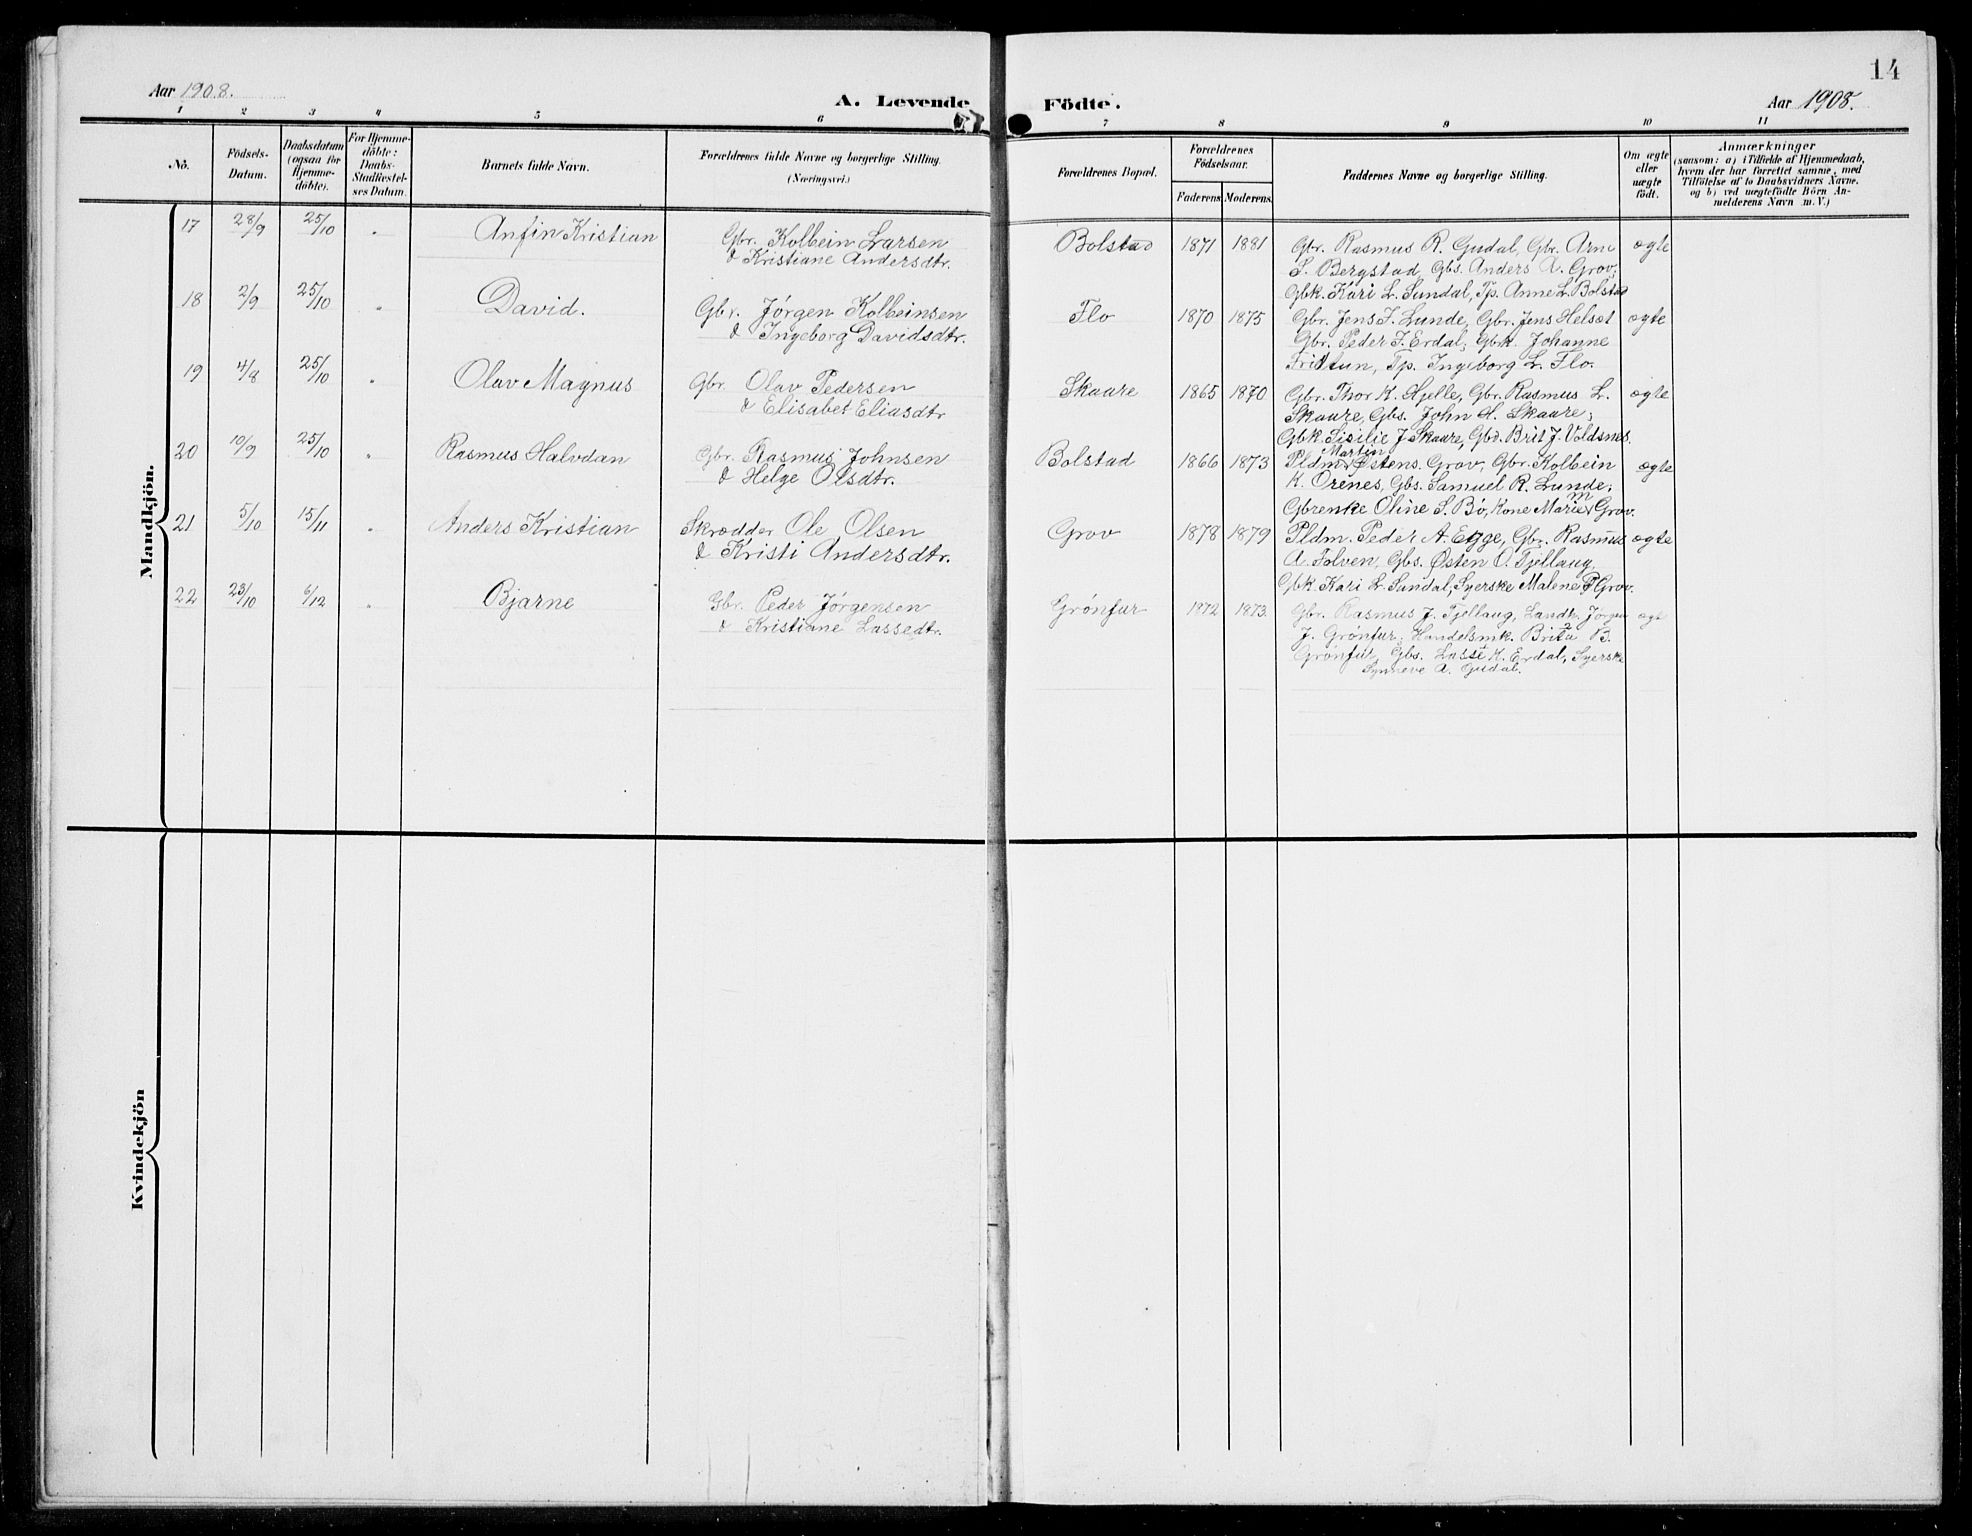 14
Aar 1908.
A. Levende
Födte.
Aar 1908.
1 2 3 4 5 6 7 8 9 10 11
No.
Födsels-
Datum.
Daabsdatum
(ogsaa for
Hjemme-
döbte).
For Hjemme-
döbte:
Daabs-
Stadfæstel-
ses Datum.
Barnets fulde Navn.
Forældrenes fulde Navne og borgerlige Stilling.
(Næringsvei.)
Forældrenes Bopæl.
Forældrenes
Födselsaar.
Faderens Moderens.
Faddernes Navne og borgerlige Stilling.
Om ægte
eller
uægte
födt.
Anmærkninger
(saasom: a) i Tilfælde af Hjemmedaab,
hvem der har forrettet samme, med
Tilföielse af to Daabsvidners Navne.
og b) ved uægtefödte Börn An-
melderens Navn m. V.)
Mandkjön.
17 28/9 25/10 " Anfin Kristian Gbr. Kolbein Larsen
& Kristiane Andersdtr.
Bolstad 1871 1881 Gbr. Rasmus R. Gudal, Gbr. Arne ægte
S. Bergstad, Gbs. Anders A. Grov,
Gbk. Kari L. Sundal, Tp. Anne L. Bolstad
18 2/9 25/10 " David. Gbr. Jørgen Kolbeinsen
& Ingeborg Davidsdtr.
Flo 1870 1875 Gbr. Jens J. Lunde, Gbr. Jens Helset ægte
Gbr. Peder J. Erdal, Gbk. Johanne
Frittun, Tp. Ingeborg L. Flo.
19 4/8 25/10 " Olav Magnus Gbr. Olav Pedersen
& Elisabet Eliasdtr
Skaare 1865 1870 Gbr. Thor K. Hjelle, Gbr. Rasmus L. ægte
Skaare, Gbs. John H. Skaare,
Gbk. Sisilie J. Skaare, Gbd. Brit J. Voldsnes.
20 10/9 25/10 " Rasmus Halvdan Gbr. Rasmus Johnsen
& Helge Olsdtr.
Martin
Bolstad 1866 1873 Pldm. Østens. Grov, Gbr. Kolbein ægte
K. Orenes, Gbs. Samuel R. Lunde,
m
Gbrenke Oline S. Bö, Kone Marie Grov.
21 5/10 15/11 " Anders Kristian Skrædder Ole Olsen
& Kristi Andersdtr.
Grov 1878 1879 Pldm. Peder A. Egge, Gbr. Rasmus ægte
A. Folven, Gbs. Østen O. Tjellaug,
Gbk. Kari L. Sundal, Syerske Malene P Grov.
22 23/10 6/12 " Bjarne Gbr. Peder Jørgensen
& Kristiane Lassedtr.
Grönfur 1872 1873. Gbr. Rasmus J. Tjellaug, Landh. Jørgen ægt
J. Grönfur, Handelsmk. Brita B.
Grönfur, Gbs. Lasse K. Erdal, Syerske
Synneve A. Gudal.
Kvindekjön